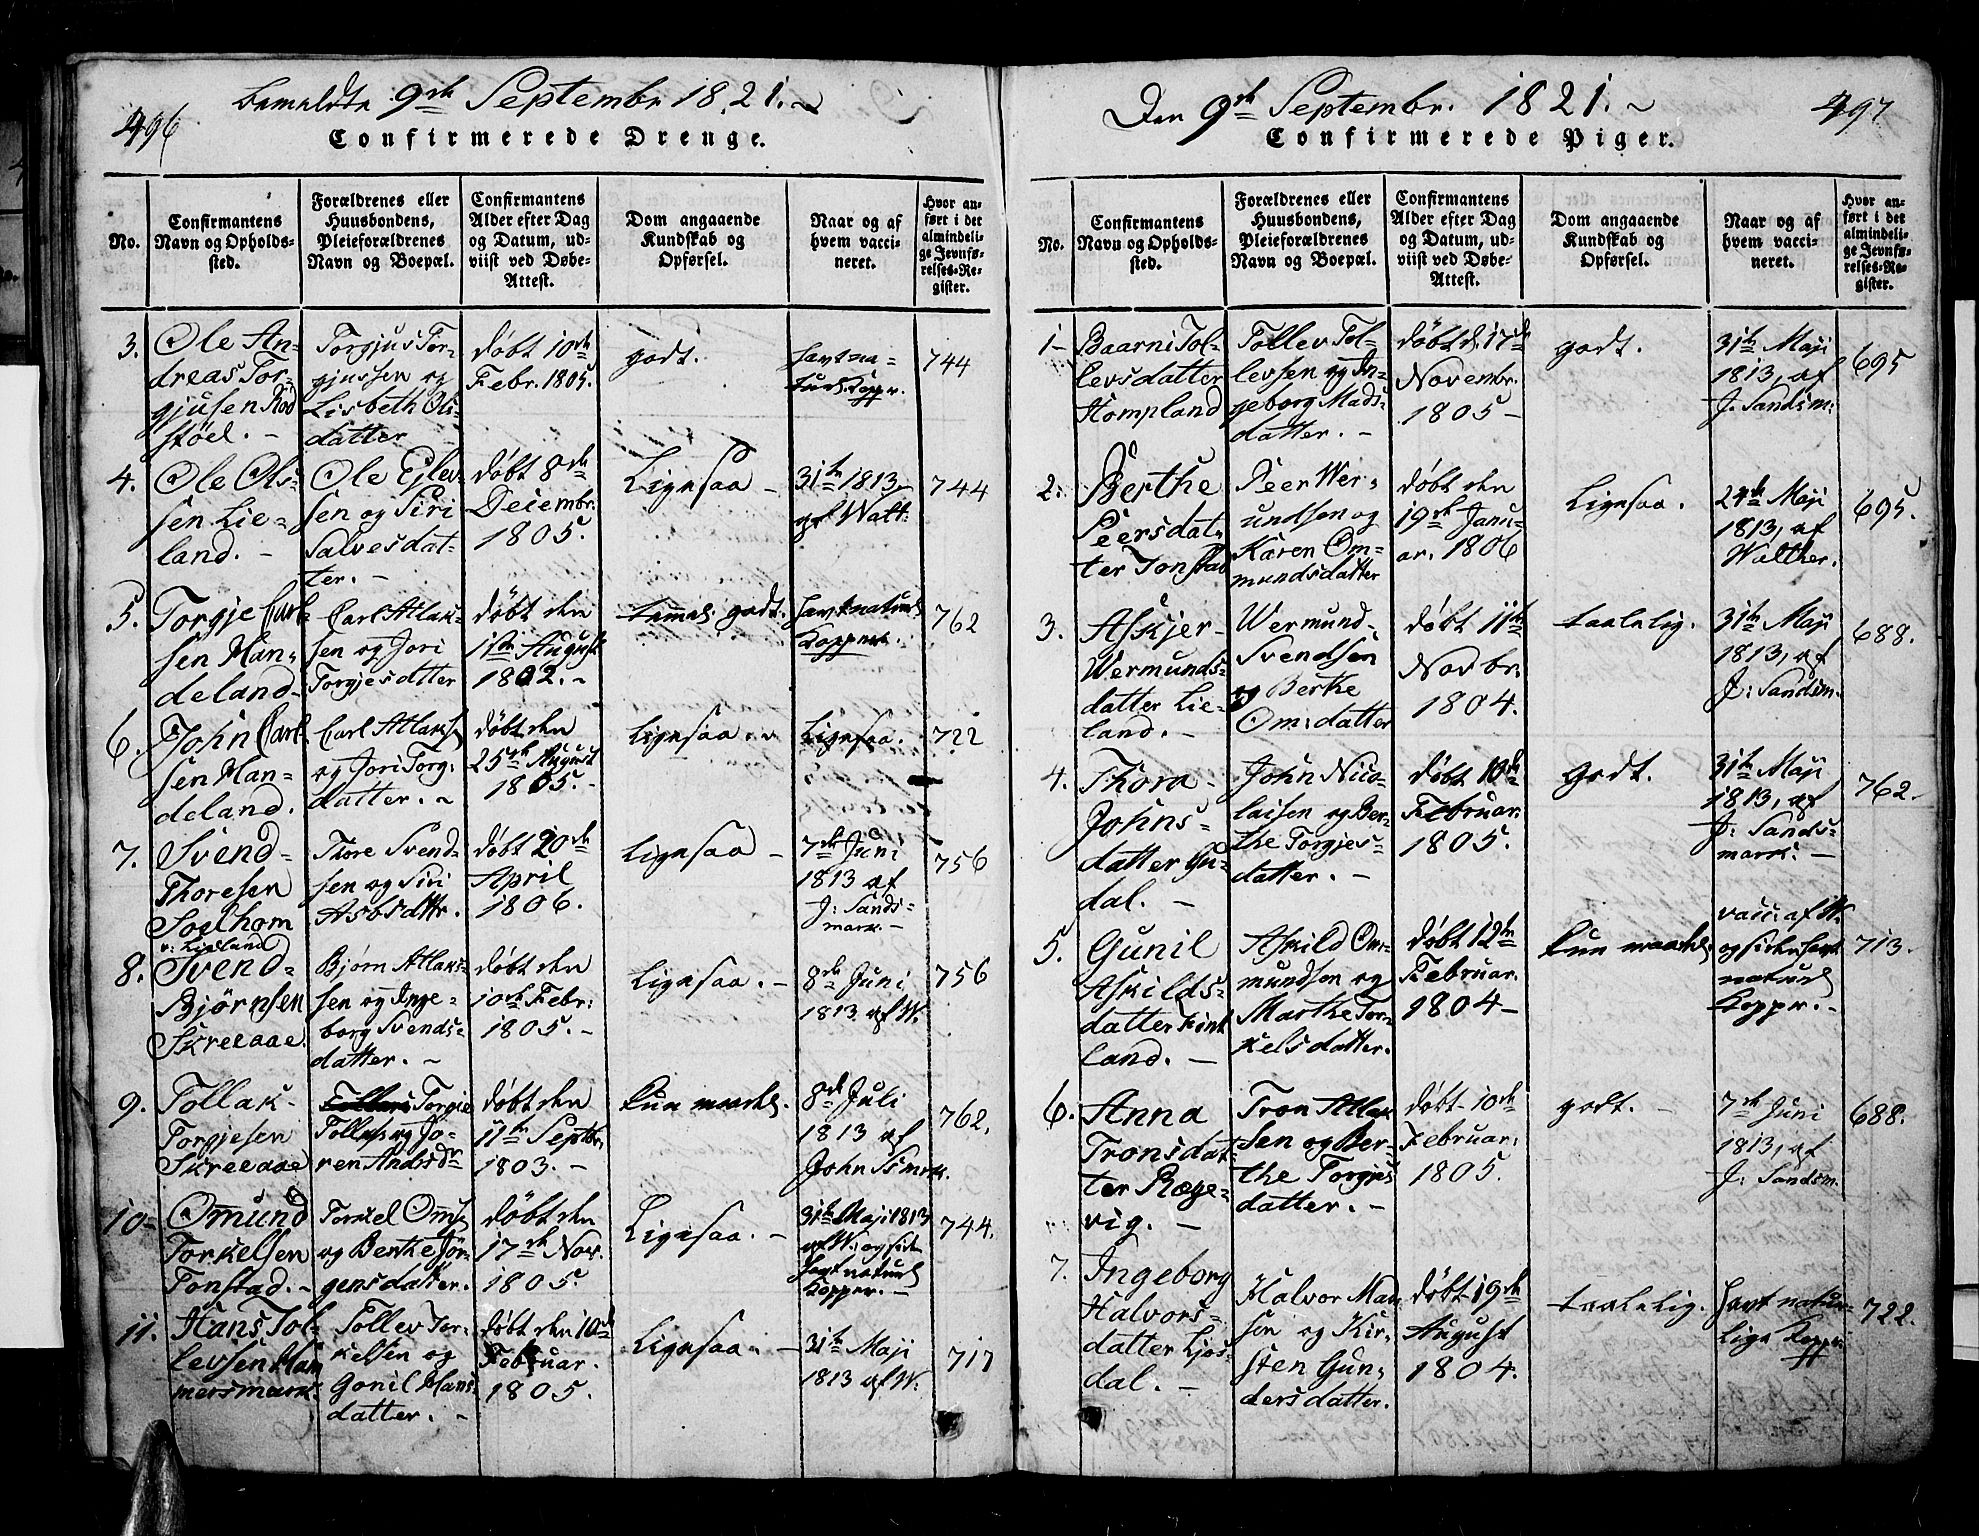 496
bemeldte 9de Septembr 1821.
Confirmerede Drenge.
No.
Confirmantens
Navn og Opholds-
sted.
Forældrenes eller
Huusbondens,
Pleieforældrenes
Navn og Boepæl.
Confirmantens
Alder efter Dag
og Datum, ud-
viist ved Døbe-
Attest.
Dom angaaende
Kundskab og
Opførsel.
Naar og af
hvem vacci-
neret.
Hvor an-
ført i det
almindeli-
ge Jevnfø-
relses-Re-
gister.
3.
Ole An-
dreas Tor-
gjusen Rød
støel. -
Torgjus Tor-
gjussen og
Lisbeth Oli-
datter
døbt 10de
Febr. 1805.
godt.
havt na-
turl. Kopper.
744
4.
Ole Ols-
sen Lie-
land. -
Ole Ejlev-
sen og Siri
Salvesdat-
ter. -
døbt 8de
Deiembr.
1805.
Ligesaa -
31te 1813
af Walt:
744
5.
Torgje Carl-
sen Han-
deland.
Carl Atlak-
sen og Jori
Torgjesdatter
døbt den
1802. -
godt.
havt naturl.
Kopper.
762
6.
John Carl-
sen Han-
deland.
Carl Atlaks
og Jori Torg:
datter. -
døbt den
25de August
1805. -
Ligesaa.
Ligesaa.
722
7.
Svend-
Thoresen
Soelhom
v. Lieland
Thore Svend-
sen og Siri
Asbsdttr.
døbt 20de
April
1806.
Ligesaa -
7de Juni
1813 af
J: Sands-
mark. -
756
8.
Svend-
Bjørnsen
Skreeaae
Bjørn Atlaks-
sen og Inge-
borg Svends-
datter. -
døbt den
10de Febr:
1805. -
Ligesaa. -
8de Juni
1813 af W.
756
9.
Tollak-
Torgjesen
Skreeaae
Torgje
Tolless og Jo-
ren Andsdr
døbt den
11te Septbr.
1803. -
kun maadel.
8de Juli
1813 af
762.
10-
Omund
Torkelsen
Tonstad. -
Torkel Oms
og Berthe Jør-
gensdatter.
døbt den
17de Nov.
1805.
Ligesaa. -
31te Maji 1813
af W. og sid.
havt naturl
Kopper. -
744.
11.
Hans Tol-
levsen Ham
mersmark.
Tollev Tor-
kelsen og
Gonil Hans
datter. -
døbt den 10de
Februar.
1805.
Ligesaa. -
31te Maji
1813 af W.
717
497
Den 9de Septembr. 1821.
Confirmerede Piger.
No.
Confirmantens
Navn og Opholds-
sted.
Forældrenes eller
Huusbondens,
Pleieforældrenes
Navn og Boepæl.
Confirmantens
Alder efter Dag
og Datum, ud-
viist ved Døbe-
Attest.
Dom angaaende
Kundskab og
Opførsel.
Naar og af
hvem vacci-
neret.
Hvor an-
ført i det
almindeli-
ge Jevnfø-
relses-Re-
gister.
1-
Baarni Tol-
levsdatter
Hompland
Tollev Tol-
levsen og In-
geborg Mads-
datter. -
døbt d. 17de
Novembr.
1805 -
godt.
31te Maji
1813, af
J. Sandsm:
695
2.
Berthe
Peersdat-
ter Tonstad
Peer Wer-
undsen og
Karen Om-
mundsdatter
døbt den
19de Janu-
ar. 1806
Ligesaa.
24de Maji
1813, af
Walther.
695.
3.
Askjer-
Wermunds-
datter Lie-
land. -
Wermund-
Svendsen
og Berthe
Om:datter
døbt 11te
Novbr.
1804.
taalelig.
31te Maji
1813, af
J: Sandsm.
688.
4.
Thora-
Johns-
datter Gu-
dal. -
John Nico-
laisen og Ber-
the Torgjes-
datter. -
døbt 10de
Februar.
1805.
Godt.
31te Maji
1813, af
J: Sands-
mark: -
762.
5.
Gunil
Askilds-
datter Fint
land. -
Askild Om-
mundsen og
Marthe Tor-
kelsdatter.
døbt 12te
Februar.
1804 -
kun maadel.
vacc: af W.
og siden havt
naturl
Kopper. -
713.
6.
Anna
Tronsdat-
ter Røge-
vig. -
Tron Atlak
sen og Ber-
the Torgjes
datter. -
døbt 10de
Februar.
1805.
godt. -
7de Juni
1813, af
J: Sandsm.
688.
7.
Ingeborg
Halvors-
datter Ljos-
dal. -
Halvor Mad
sen og Kir-
sten Gun-
dersdatter.
døbt 19de
August
1804.
taalelig.
havt natur-
lige Kopper
722.